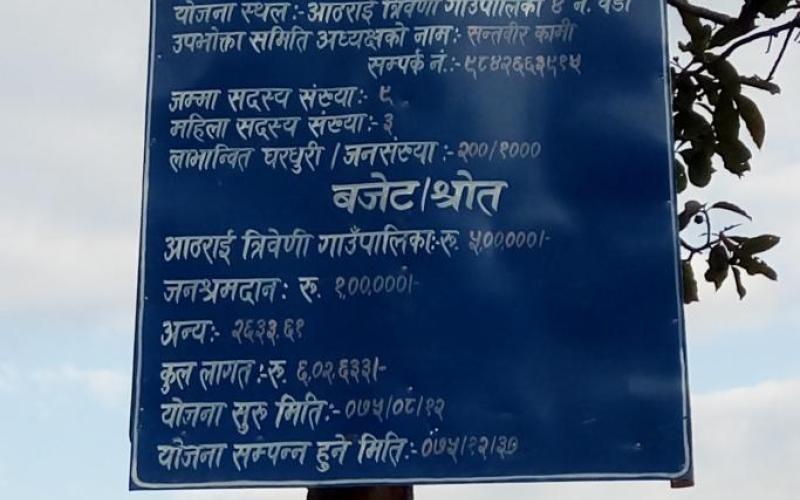 योजना स्थल:- आठराई त्रिवेणी गाउँपालिका ४ नं. वडा
उपभोक्ता समिति अध्यक्षको नाम:- सन्तवीर कामी
सम्पर्क नं.:- ९८४२६६३९१५
जम्मा सदस्य संख्या:- ९
महिला सदस्य संख्या:- ३
लाभान्वित घरधुरी / जनसंख्या:- २००/१०००
बजेट/श्रोत
आठराई त्रिवेणी गाउँपालिका:-रु. ५,००,०००।-
जनश्रमदान: रु. १,००,०००।-
अन्य:- २६३३.६१
कुल लागत:-रु. ६,०२,६३३।-
योजना सुरु मिति:- ०७५/०८/१२
योजना सम्पन्न हुने मिति:- ०७५/१२/३०